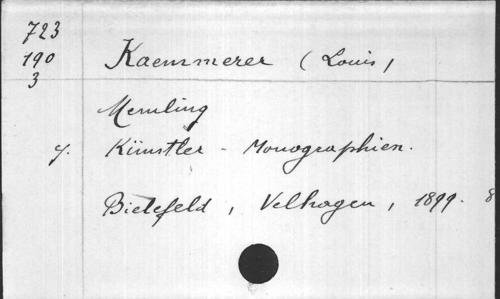 723
190
3
Kaemmerer (Louis)
Memling
y. Künstler - Monographien.
Bielefeld, Velhagen, 1899. 8